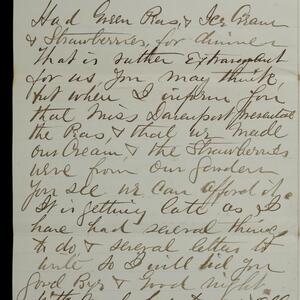 Had Green Peas, & Ice Cream
& Strawberries, for dinner
that is rather Extravagant
for us, You may think,
but when I inform you
that Miss Davenport presented
the Peas, & that we made
our Cream & the Strawberries
were from our Garden
You see we can afford it.
It is getting late as I
have had several things
to do, & several letters to
write so I will bid you
Good Bye & Good night